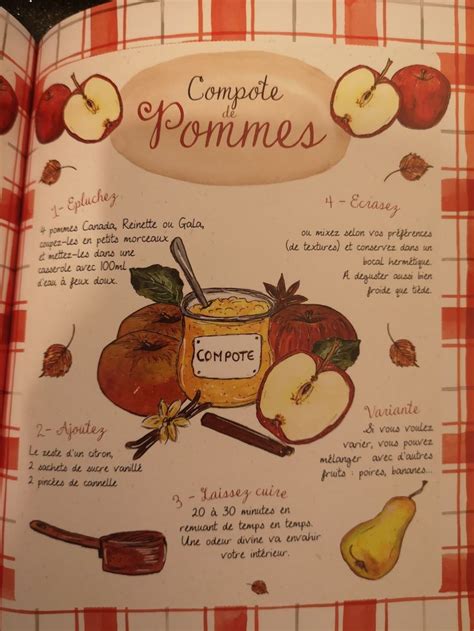 Compote
de
Pommes
1 - Epluchez
4 pommes Canada, Reinette ou Gala,
coupez-les en petits morceaux
et mettez-les dans une
casserole avec 100ml
d'eau à feux doux.
COMPOTE
2 - Ajoutez
Le zeste d'un citron,
2 sachets de sucre vanillé
2 pincées de cannelle
3 - Laissez cuire
20 à 30 minutes en
remuant de temps en temps.
Une odeur divine va envahir
votre intérieur.
4 - Ecrasez
ou mixez selon vos préférences
(de textures) et conservez dans un
bocal hermétique.
A deguster aussi bien
froide que tiède.
Variante
Si vous voulez
varier, vous pouvez
mélanger avec d'autres
fruits : poires, bananes...